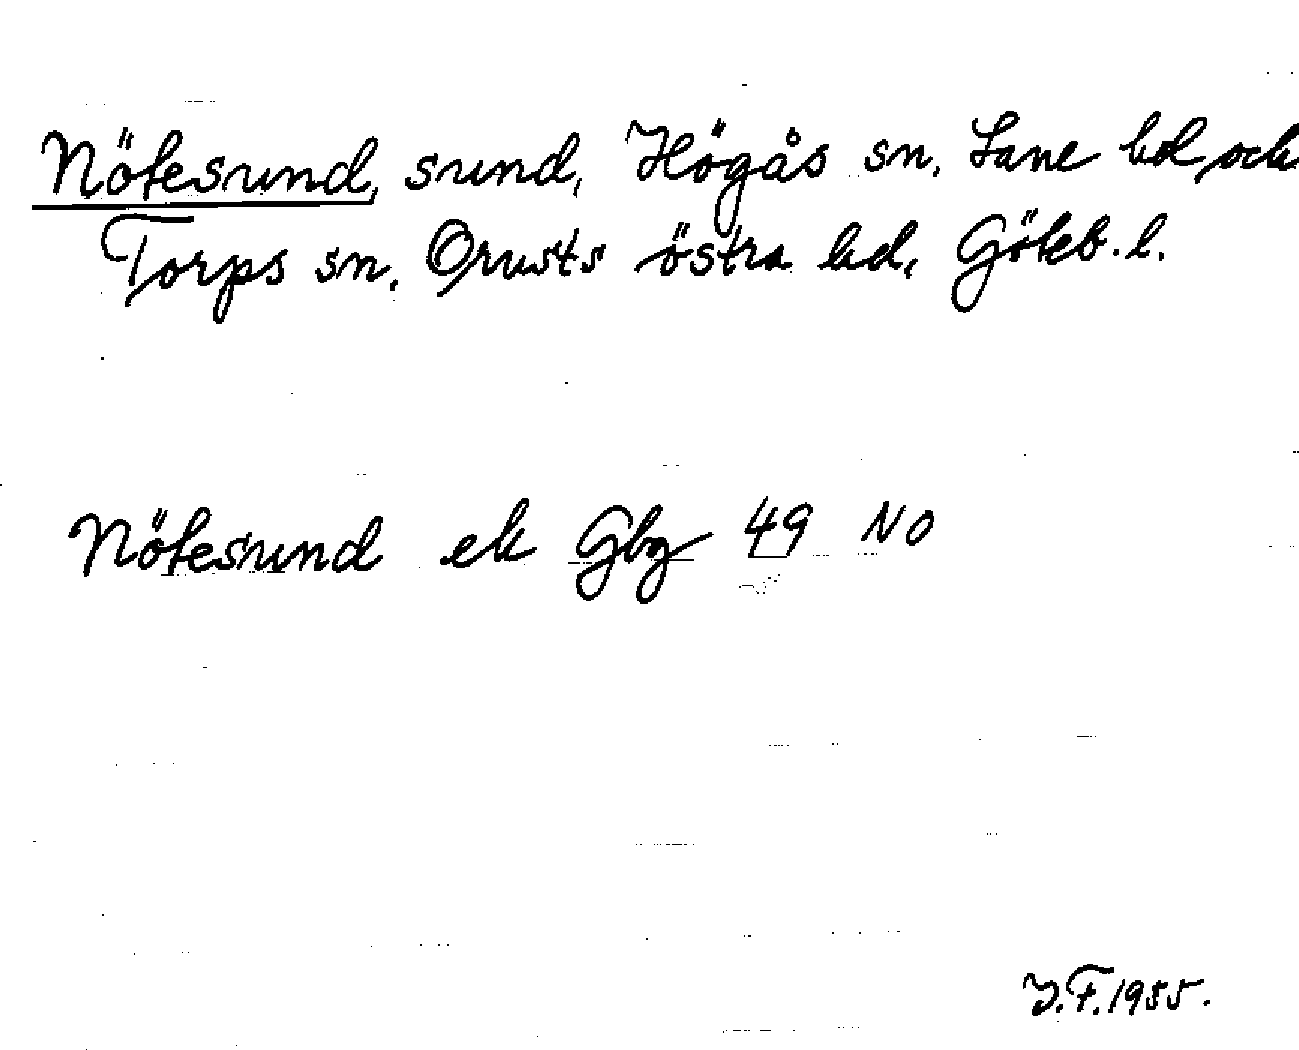 Nötesund, sund, Högås sn. Lane hd och
Torps sn. Orusts östra hd, Göteb. l.
Nötesund ek Gbg 49 NO
J.F. 1955.